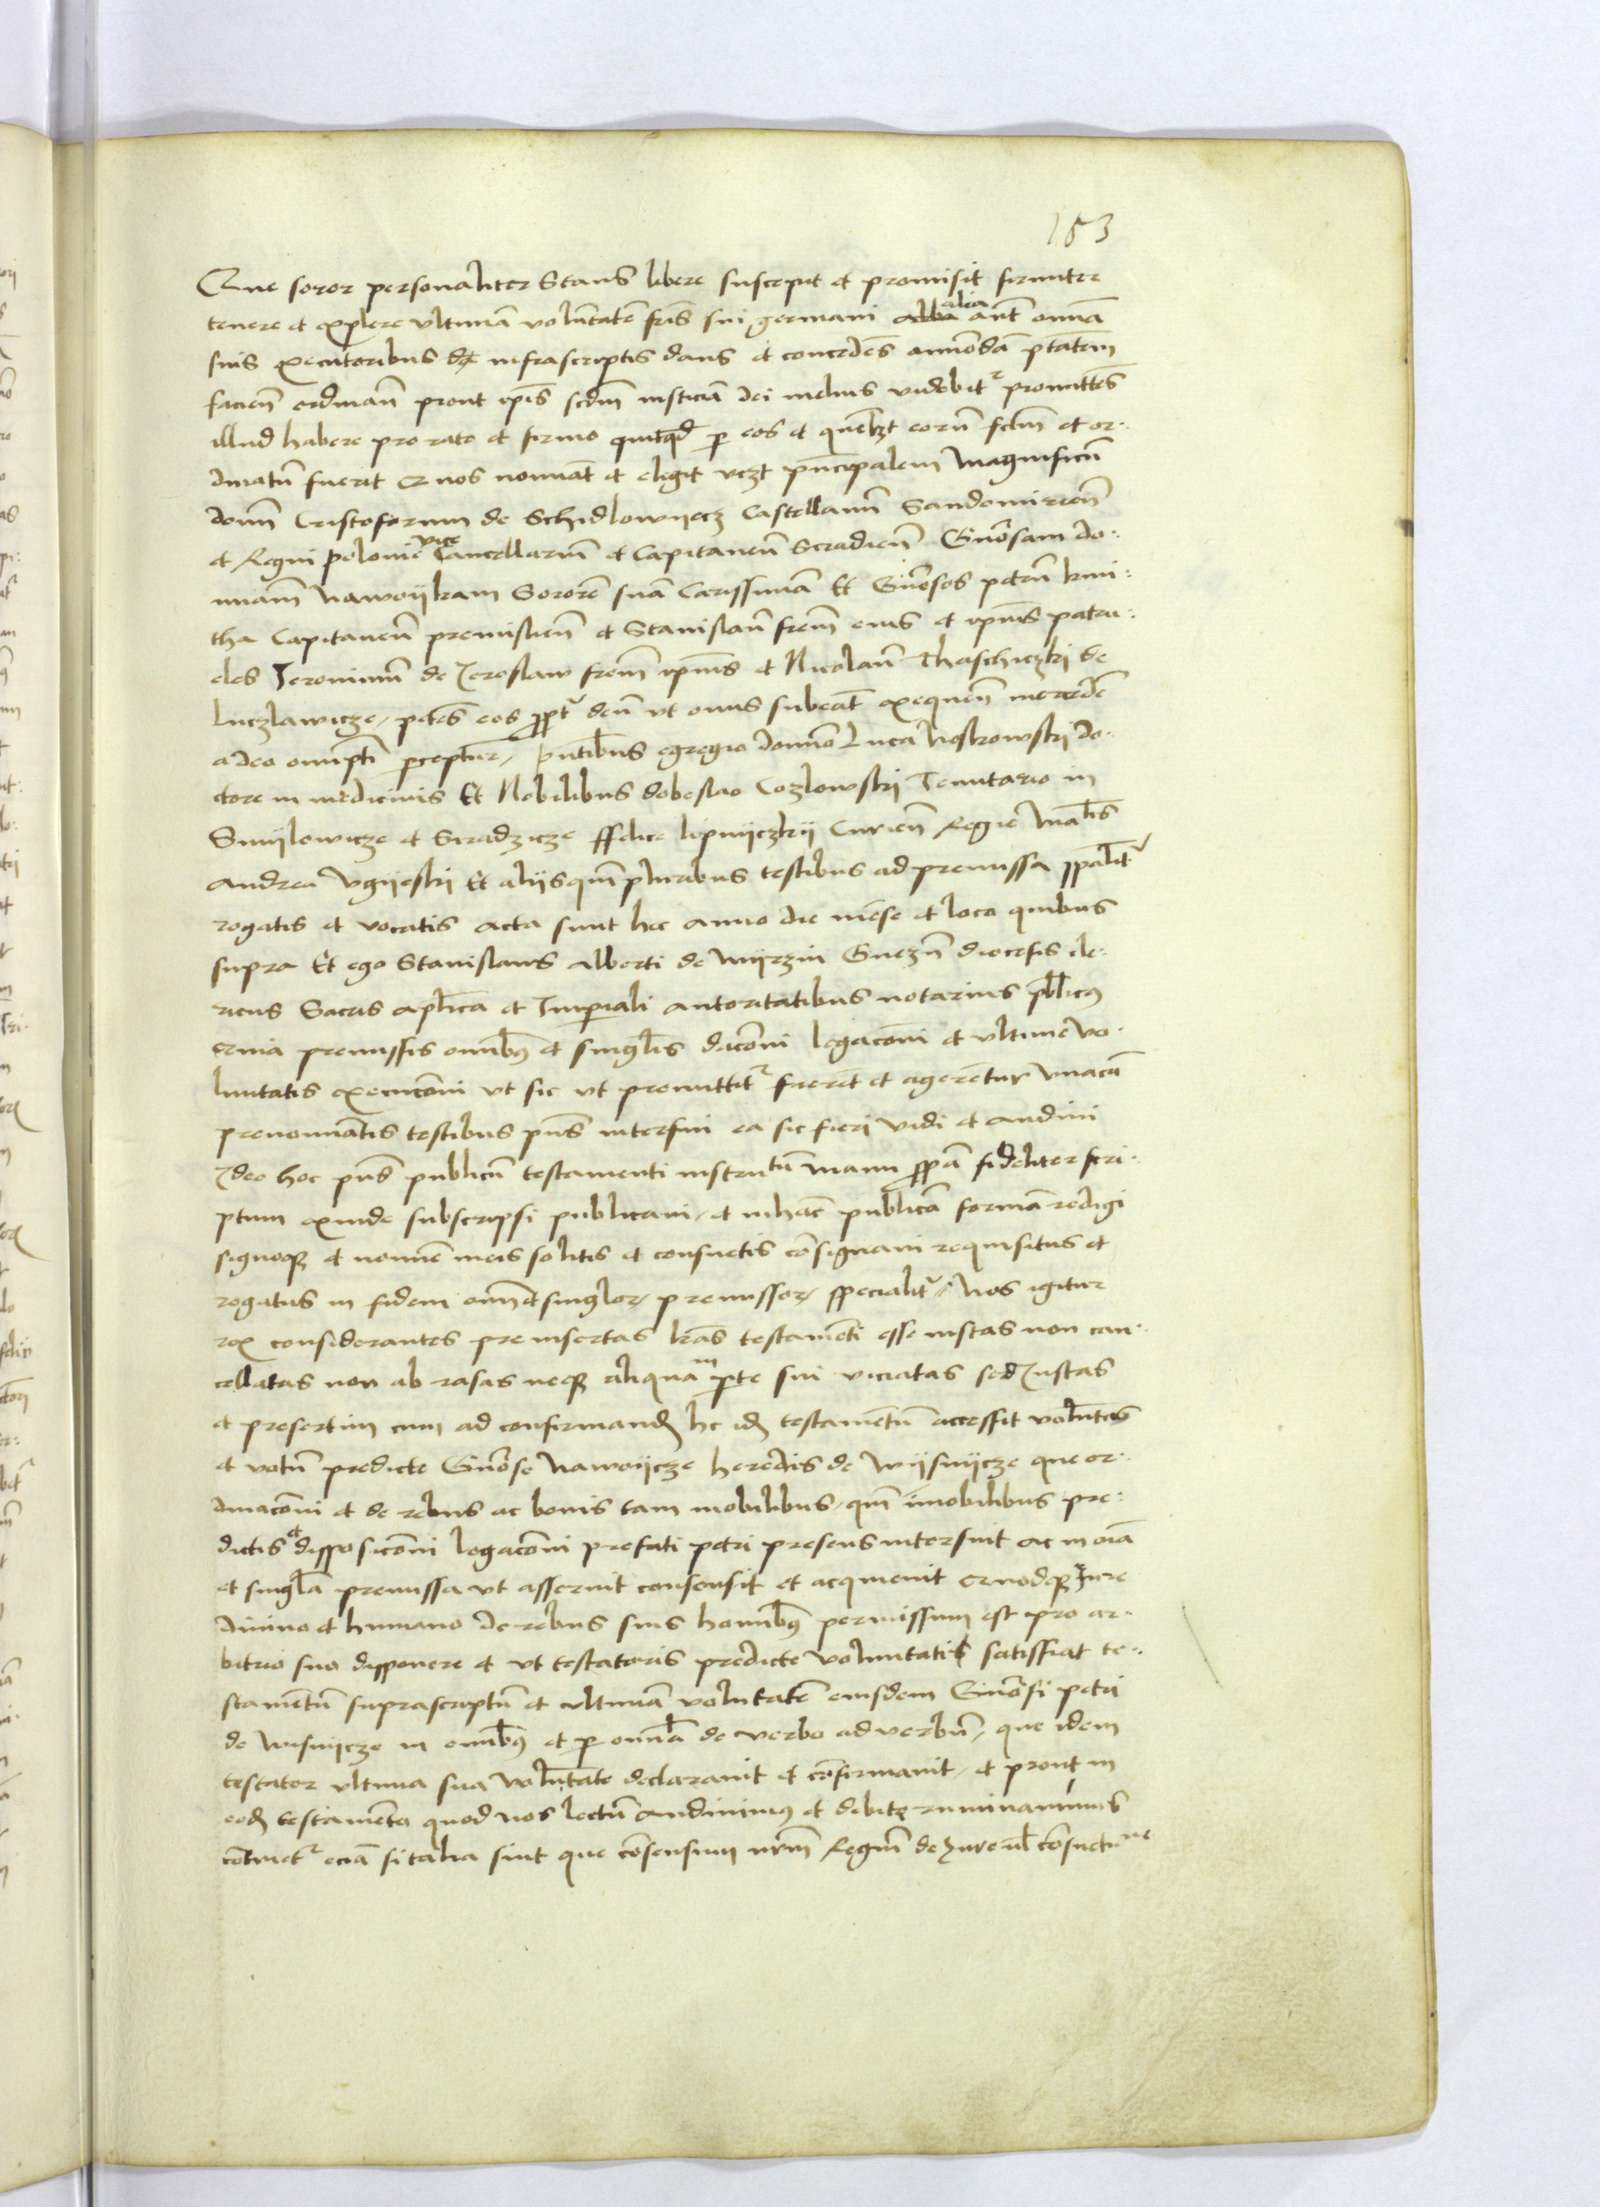 153
Que soror personaliter Stans libere suscepit et promisit firmitere
tenere et explere vltimā volūtatē frīs sui germani alia aūt omnīa
suis executoribus infrascriptis dans et concedēs omnīodā ptātem
faciēn ordinān prout ipīs scdm iusticiā dei melius videbitr promittēs
illud habere pro rato et firmo quitqd p eos et quēlzt eorū fctm et or-
dinatū fuerit Quos nominat et eligit vczt pncipalem Magnificū
domn Cristoforum de Schidlowyecz Castellanū Sandomirieñ
et Regni polonie vice Cancellariū et Capitaneū Siradieñ Gnosam do-
minam Nawoykam Sororē suā Carissimā Et Gnosos petrū kmi-
tha Capitaneū premislieñ et Stanislaū frēm eius et ipius patru-
eles Jeronimū de Jeroslaw frēm ipius et Nicolaū Thaschiczki de
luczlawicze, petēs eos ppt deū vt onus subeāt exequeñ mercedē
a deo omnipti pceptur, pntibus egregio domino luca Noskowski do-
ctore in medicinis Et Nobilibus dobeslao Cozlowski Tenutario in
Smylowicze et Siradzicze ffelice lipnyczky Curieñ Regie Matis
Andrea Vgyeski Et alys qm pluribus testibus ad premissa
rogatis et vocatis Acta sunt hec anno die mēse et loco quibus
supra Et ego Stanislaus Alberti de wyrzin Gnezñ diocesis cle-
ricus Sacris aplica et Imperiali autoritatibus notarius pblicus
Quia premissis omībus et singlis dacōni legacōni et vltime vo-
luntatis execucōni vt sic vt premittitr fierēt et agerētur vnacū
prenominātis testibus pns interfui ea sic fieri vidi et audiui
Ideo hoc pns publicū testamenti instrutū manu ppa fideliter scri-
ptum exinde subscripsi publicaui, et in hāc publicā formā redigi
signoque et nomīe meis solitis et consuetis cōsignaui requisitus et
rogatus in fidem omn et singlor premissor specialitr, Nos igitur
rex considerantes preinsertas lras testamēti esse iustas non can-
cellatas non ab rasas neque aliqua in parte sui viciatas sed Iustas
et presertim cum ad confirmand hc id testamētū accessit volūtas
et votū predicte Gnose Nawoycze heredis de wysnycze que or-
dinacōni et de rebus ac bonis tam mobilibus, qm īmobilibus pre-
dictis et disposicōni legacōni prefati petri presens interfuit ac in oīa
et singla premissa vt asseruit consensit et acquieuit Quodque Iure
diuino et humano de rebus suis hominībus permissum est pro ar-
bitrio suo disponere et vt testatoris predicte voluntati satisfiat te-
stamētū suprascriptū et vltimā volūtatē eiusdem Gnosi petri
de wisnicze in omībus et p omnīa de verbo ad verbū, que idem
testator vltima sua volūtate declarauit et cōfirmauit, et prout in
eod testamēto quod nos lectū audiuimus et debite ruminauimus
cōtinetr eciā si talia sint que cōsensum nrm Regiū de Iure vel cōsuetudine